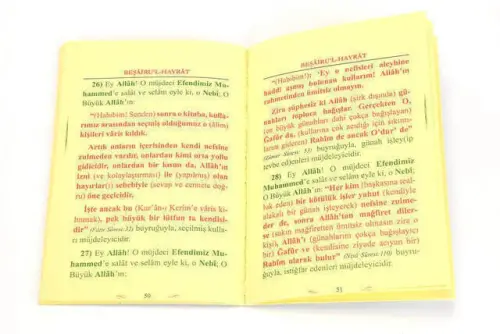 BEŞÂİRU'L-HAYRÂT
26) Ey Allâh! O müjdeci Efendimiz Mu-
hammed'e salât ve selâm eyle ki, o Nebî; O
Büyük Allâh'ın:
"(Habîbim! Senden) sonra o kitaba, kulla-
rımız arasından seçmiş olduğumuz o (âlim)
kişileri vâris kıldık.
Artık onların içerisinden kendi nefsine
zulmeden vardır, onlardan kimi orta yollu
gidicidir, onlardan bir kısmı da, Allâh'ın
izni (ve kolaylaştırması) ile (yapılmış) olan
hayırlar(ı) sebebiyle (sevap ve cennete doğ-
ru) öne geçicidir.
İşte ancak bu (Kur'ân-ı Kerîm'e vâris kı-
lınmak), pek büyük bir lütfun ta kendisi-
dir" (Fâtır Sûresi:32) buyruğuyla, seçilmiş kulla-
rı müjdeleyicidir.
27) Ey Allâh! O müjdeci Efendimiz Mu-
hammed'e salât ve selâm eyle ki, o Nebî; O
Büyük Allâh'ın:
50
BEŞÂİRU'L-HAYRÂT
"(Habîbim!) 'Ey o nefisleri aleyhine
haddi aşmış bulunan kullarım! Allâh'ın
rahmetinden ümitsiz olmayın.
Zira şüphesiz ki Allâh (şirk dışında) günahları topluca bağışlar. Gerçekten O,
(en büyük günahları dahi çokça bağışlayan)
Ğafûr da, (kullarına çok acıdığı için
gideren) Rahîm de ancak O'dur' de"
(Zümer Sûresi: 53) buyruğuyla, günah işleyip
tevbe edenleri müjdeleyicidir.
28) Ey Allâh! O müjdeci Efendimiz
Muhammed'e salât ve selâm eyle ki, o Nebî;
O Büyük Allâh'ın: "Her kim (başkasına
bir kötülük işler yahut (kendiyle
alakalı bir günah işleyerek) nefsine zulme-
der de, sonra Allâh'tan mağfiret diler-
se
kişi, Allâh'ı (günahlarını çokça bağışlayıcı
bir) Ğafûr ve (kendisine ziyade acıyan bir)
Rahîm olarak bulur" (Nisâ Sûresi:110) buyru-
ğuyla, istiğfar edenleri müjdeleyicidir.
51